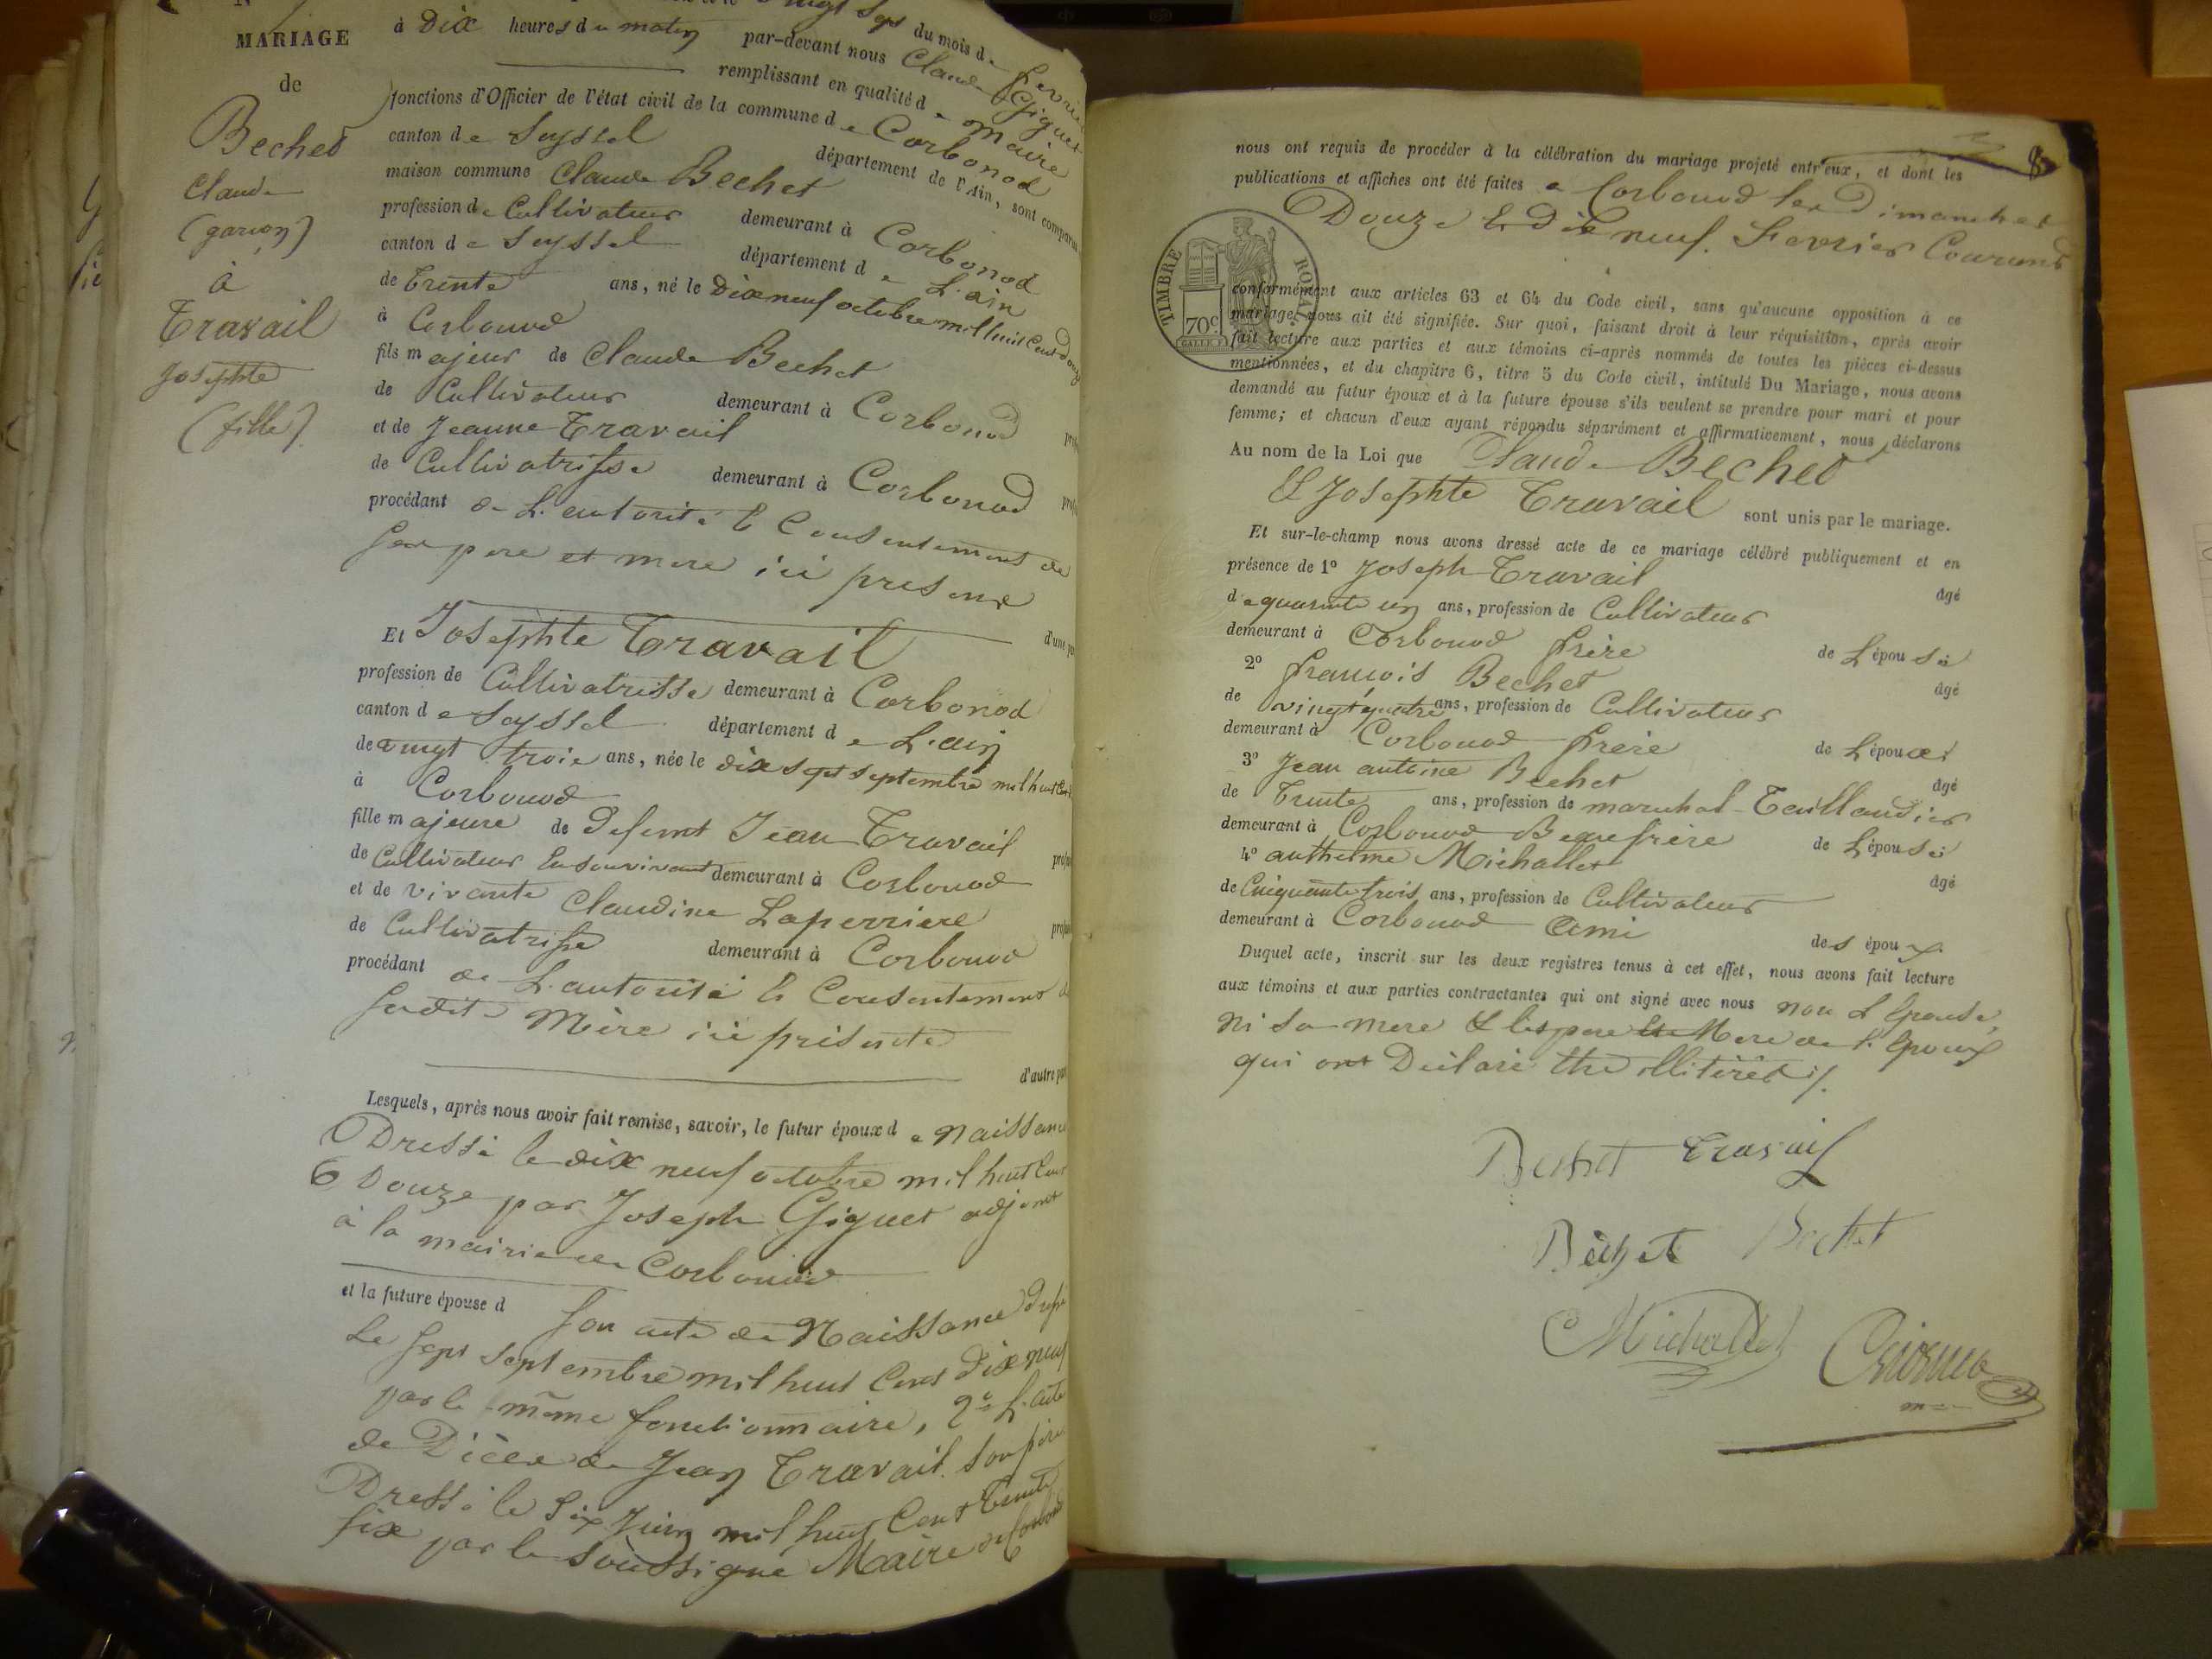 MARIAGE
de
Bechet
Claude
(garçon)
à
Travail
Josephte
(fille)
vingt sept du mois de fevrier
à Dix heures du matin par-devant nous Claude Giguet
remplissant en qualité de Maire
fonctions d'Officier de l'état civil de la commune de Corbonod
canton de Seyssel département de l'Ain, sont comparus
maison commune Claude Bechet
profession de Cultivateur demeurant à Corbonod
canton de Seyssel département de L'ain
de Trente ans, né le Dix neuf octobre mil huit cent douze
à Corbonod
fils majeur de Claude Bechet
de Cultivateur demeurant à Corbonod
et de Jeanne Travail
de Cultivatrisse demeurant à Corbonod
procédant de L'autorité & Consentement de
ses pere et mere ici present
d'une part
Et Josephte Travail
profession de Cultivatrisse demeurant à Corbonod
canton de Seyssel département de L'ain
de vingt trois ans, née le dix sept septembre mil huit Cent
à Corbonod
fille majeure de Defunt Jean Travail
de Cultivateur En son vivant demeurant à Corbonod
et de vivante Claudine Laperriere
de Cultivatrisse demeurant à Corbonod
procédant de L'autorité & Consentement de
sadite Mère ici présente
d'autre part
Lesquels, après nous avoir fait remise, savoir, le futur époux de Naissance
Dressé le dix neuf octobre mil huit Cent
Douze par Joseph Giguet adjoint
à la mairie de Corbonod
et la future épouse d son acte de Naissance Dressé
Le sept septembre mil huit Cent Dix neuf
par le même fonctionnaire, 2º L'acte
de Décès de Jean Travail son père
Dressé le Six Juin mil huit Cent Trente
six par le Soussigné Maire de Corbonod
8
nous ont requis de procéder à la célébration du mariage projeté entr'eux, et dont les
publications et affiches ont été faites a Corbonod les Dimanches
Douze Et Dix neuf. Fevrier Courant
TIMBRE ROYAL
70c
conformément aux articles 63 et 64 du Code civil, sans qu'aucune opposition à ce
mariage nous ait été signifiée. Sur quoi, faisant droit à leur réquisition, après avoir
fait lecture aux parties et aux témoins ci-après nommés de toutes les pièces ci-dessus
mentionnées, et du chapitre 6, titre 5 du Code civil, intitulé Du Mariage, nous avons
demandé au futur époux et à la future épouse s'ils veulent se prendre pour mari et pour
femme; et chacun d'eux ayant répondu séparément et affirmativement, nous déclarons
Au nom de la Loi que Claude Bechet
& Josephte Travail sont unis par le mariage.
Et sur-le-champ nous avons dressé acte de ce mariage célébré publiquement et en
présence de 1º Joseph Travail âgé
de quarante un ans, profession de Cultivateur
demeurant à Corbonod frère de L'épouse
2º françois Bechet âgé
de vingt quatre ans, profession de Cultivateur
demeurant à Corbonod frere de L'époux
3º Jean antoine Bechet âgé
de Trente ans, profession de marechal-Taillandier
demeurant à Corbonod Beaufrère de L'épouse
4º anthelme Michallet âgé
de Cinquante trois ans, profession de Cultivateur
demeurant à Corbonod Ami des époux
Duquel acte, inscrit sur les deux registres tenus à cet effet, nous avons fait lecture
aux témoins et aux parties contractantes qui ont signé avec nous non L'épouse,
ni sa mere & les pere Mere de L'époux
qui ont Déclaré être illitérés
Bechet Travail
Bechet Bechet
Michallet